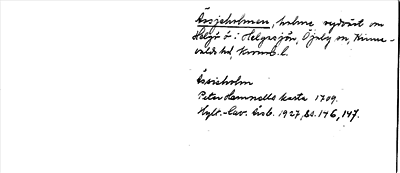 Åssjeholmen, holme sydväst om
Helgö i Helgasjön, Öjaby sn, Kinne-
valds hd, Kronob. l.
Åssieholm
Peter Hamnells karta 1709.
Hylt.-Cav. årsb. 1927, ss. 146, 147.